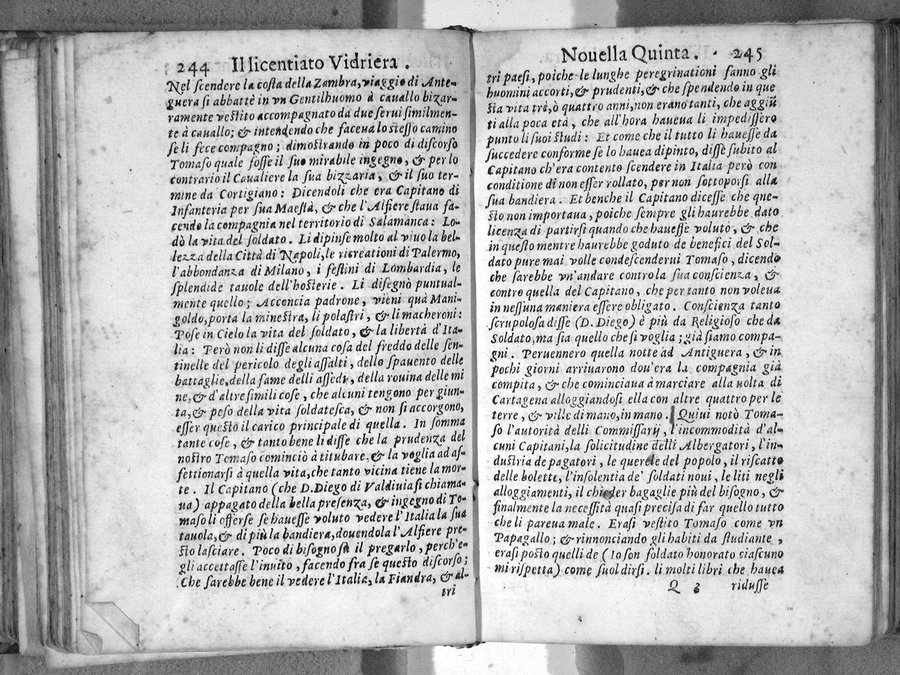 244 Il licentiato Vidriera.
Nel scendere la costa della Zambra, viaggio di Ante-
guera si abbattè in vn Gentilhuomo à cauallo bizar-
ramente vestito accompagnato da due serui similmen-
te à cauallo; & intendendo che faceua lo stesso camino
se li fece compagno; dimostrando in poco di discorso
Tomaso quale fosse il suo mirabile ingegno, & per lo
contrario il Caualiere la sua bizzaria, & il suo ter-
mine da Cortigiano: Dicendoli che era Capitano di
Infanteria per sua Maestà, & che l'Alfiere staua fa-
cendo la compagnia nel territorio di Salamanca: Lo-
dò la vita del soldato. Li dipinse molto al viuo la bel-
lezza della Città di Napoli, le ricreationi di Palermo,
l'abbondanza di Milano, i festini di Lombardia, le
splendide tauole dell'hosterie. Li disegnò puntual-
mente quello; Accencia padrone, vieni quà Mani-
goldo, porta la minestra, li polastri, & li macheroni:
Pose in Cielo la vita del soldato, & la libertà d'Ita-
lia: Però non li disse alcuna cosa del freddo delle sen-
tinelle del pericolo degli assalti, dello spauento delle
battaglie, della fame delli assedi, della rouina delle mi
ne, & d'altre simili cose, che alcuni tengono per giun-
ta, & peso della vita soldatesca, & non si accorgono,
esser questo il carico principale di quella. In somma
tante cose, & tanto bene li disse che la prudenza del
nostro Tomaso cominciò à titubare, & la voglia ad af-
fettionarsi à quella vita, che tanto vicina tiene la mor-
te. Il Capitano (che D. Diego di Valdiuia si chiama-
ua) appagato della bella presenza, & ingegno di To-
maso li offerse se hauesse voluto vedere l'Italia la sua
tauola, & di più la bandiera, douendola l'Alfiere pre-
sto lasciare. Poco di bisogno fù il pregarlo, perch'e-
gli accettasse l'inuito, facendo fra se questo discorso;
Che sarebbe bene il vedere l'Italia, la Fiandra, & al-
tri
Nouella Quinta. 245
tri paesi, poiche le lunghe peregrinationi fanno gli
huomini accorti, & prudenti, & che spendendo in que
sta vita trè, ò quattro anni, non erano tanti, che aggiũ
ti alla poca età, che all'hora haueua li impedissero
punto li suoi studi: Et come che il tutto li hauesse da
succedere conforme se lo hauea dipinto, disse subito al
Capitano ch'era contento scendere in Italia però con
conditione di non esser rollato, per non sottoporsi alla
sua bandiera. Et benche il Capitano dicesse che que-
sto non importaua, poiche sempre gli haurebbe dato
licenza di partirsi quando che hauesse voluto, & che
in questo mentre haurebbe goduto de benefici del Sol-
dato pure mai volle condescenderui Tomaso, dicendo
che sarebbe vn'andare contro la sua conscienza, &
contro quella del Capitano, che per tanto non voleua
in nessuna maniera essere obligato. Conscienza tanto
scrupolosa disse (D. Diego) è più da Religioso che da
Soldato, ma sia quello che si voglia; già siamo compa-
gni. Peruennero quella notte ad Antiguera, & in
pochi giorni arriuarono dou'era la compagnia già
compita, & che cominciaua à marciare alla uolta di
Cartagena alloggiandosi ella con altre quattro per le
terre, & ville di mano, in mano. Quiui notò Toma-
so l'autorità delli Commissarÿ, l'incommodità d'al-
cuni Capitani, la solicitudine delli Albergatori, l'in-
dustria de pagatori, le querele del popolo, il riscatto
delle bolette, l'insolentia de' soldati noui, le liti negli
alloggiamenti, il chieder bagaglie più del bisogno, &
finalmente la necessità quasi precisa di far quello tutto
che li pareua male. Erasi vestito Tomaso come vn
Papagallo; & rinnonciando gli habiti da studiante,
erasi posto quelli de (Io son soldato honorato ciascuno
mi rispetta) come suol dirsi. li molti libri che hauea
Q 3 ridusse